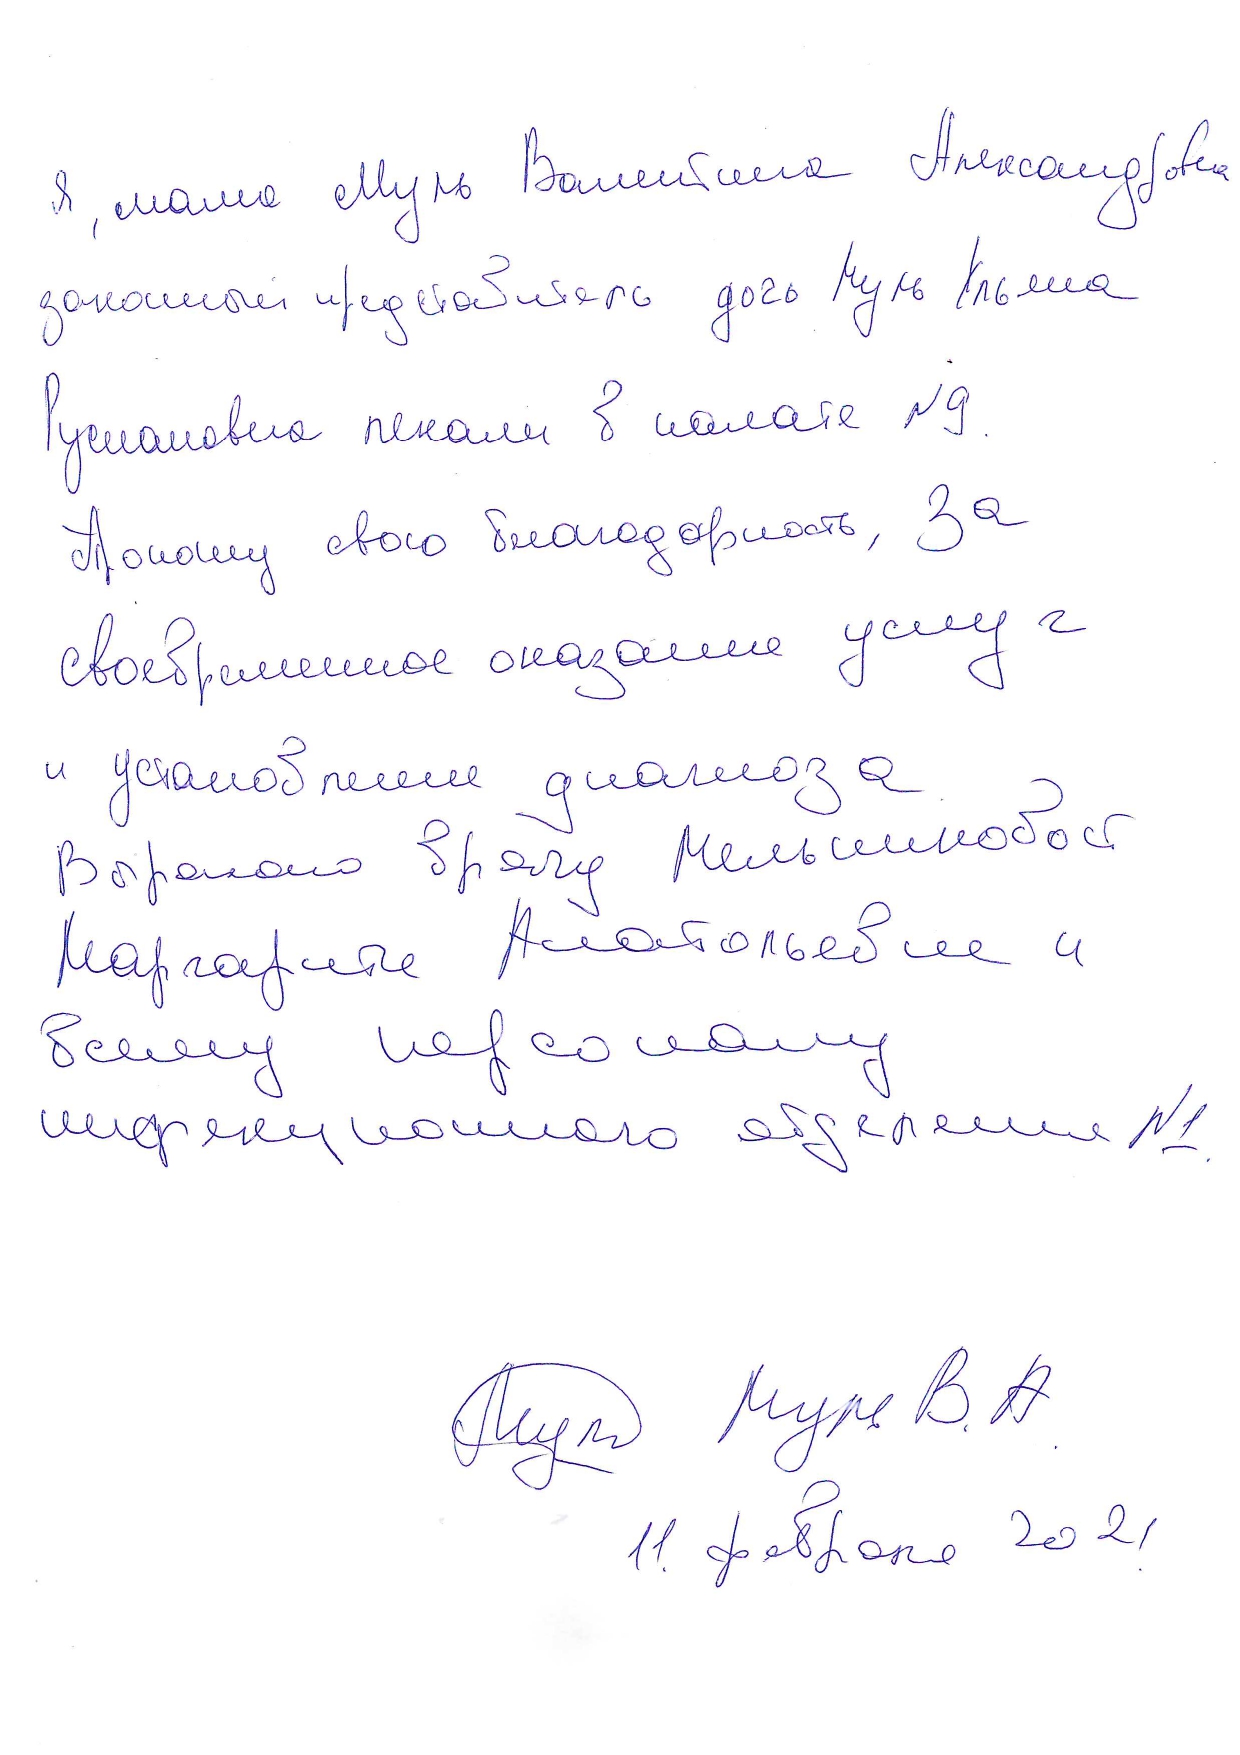 Я, мама Муль Валентина Александровна
законный представитель дочь Муль Ульяна
Руслановна лежали в палате №9.
Приношу свою благодарность, За
своевременное оказание услуг
и установление диагноза
Выражаю врачу Мельниковой
Маргарите Анатольевне и
всему персоналу
инфекционного отделения №1.
Муль Муль В. А.
11. февраля 2021.